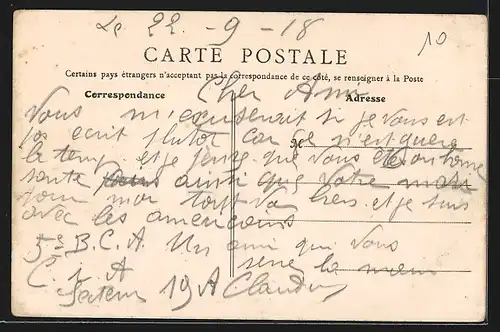 Le 22-9-18
10
CARTE POSTALE
Certains pays étrangers n'acceptant pas la correspondance de ce côté, se renseigner à la Poste
Correspondance
Adresse
Cher Ami
Vous m'excuserait si je vous est
pas ecrit plutot car ce n'est guere
le temp et je pense que vous ete en bonne
sante ainsi que votre
pour moi tout va bien et je suis
avec les americains
5e B.C.A. Un ami qui vous
serre la main
C L A
Secteur 19A Claudin